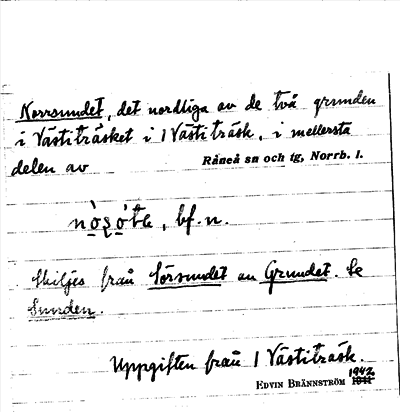 Norrsundet, det nordliga av de två grunden
i Västiträsket i 1 Västiträsk, i mellersta
delen av Råneå sn och tg, Norrb. l.
bf. n.
Skiljes från Sörsundet av Grundet. Se
Sunden.
Uppgiften från 1 Västiträsk.
EDVIN BRÄNNSTRÖM 1942